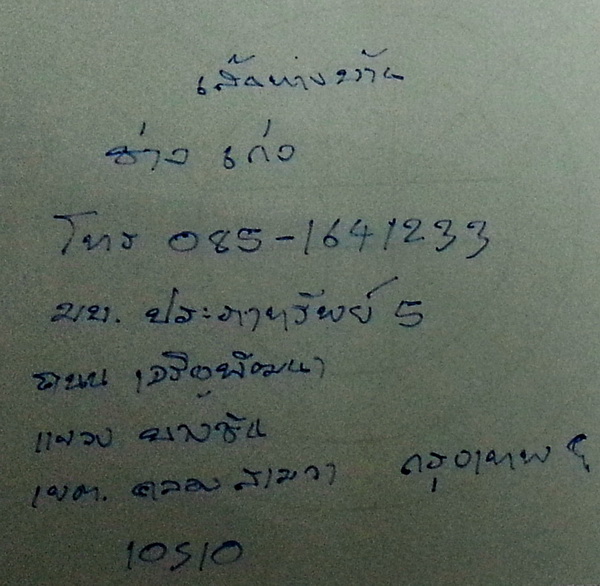 เส้นทางบ้าน
ช่าง เก่ง
โทร 085-1641233
มบ. ประภาทรัพย์ 5
ถนน เจริญพัฒนา
แขวง บางชัน
เขต. คลองสามวา กรุงเทพฯ
10510